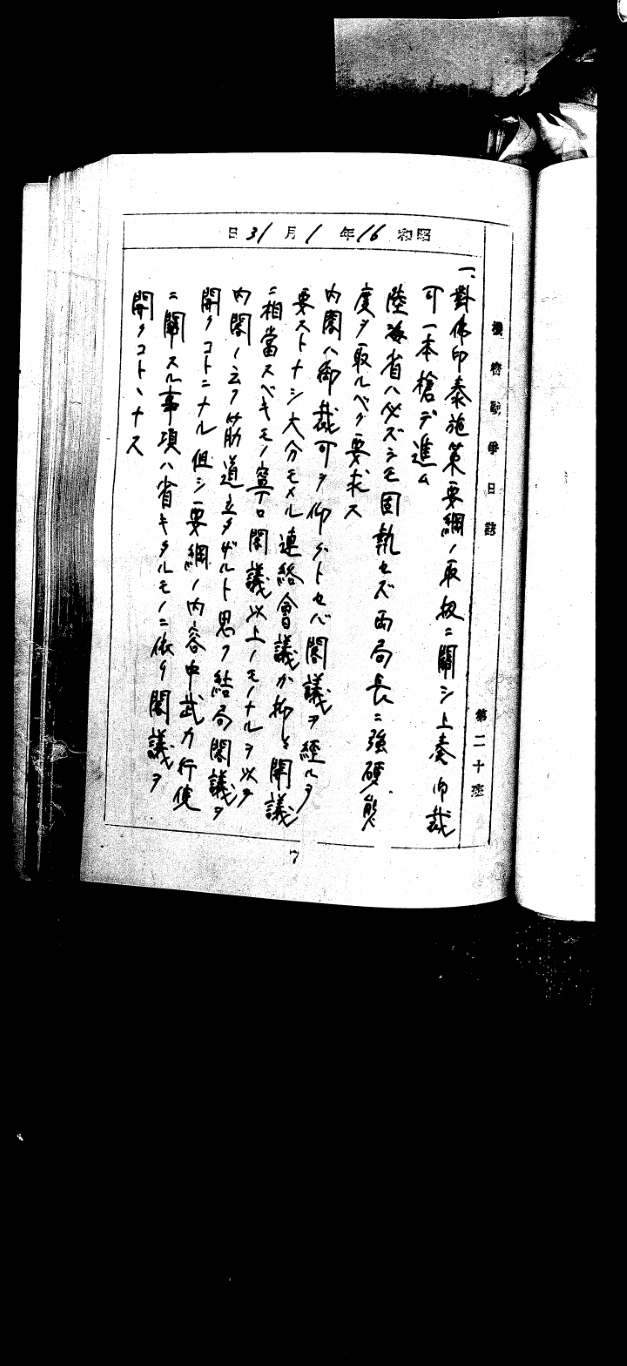 機密戰爭日誌 第二十班
昭和16年1月31日
一、對佛印泰施策要綱ノ取扱ニ關シ上奏御裁
可一本槍デ進ム
陸海省ハ必ズシモ固執セズ両局長ニ強硬態
度ヲ取ルベク要求ス
内閣ハ御裁可ヲ仰グトセバ閣議ヲ經ルヲ
要ストナシ大分モメル 連絡會議か抑々閣議
ニ相當スベキモノ寧ロ閣議以上ノモノナルヲ以テ
内閣ノ云フ筋道立タザルト思フ結局閣議ヲ
開クコトニナル但シ要綱ノ内容中武力行使
ニ關スル事項ハ省キタルモノニ依リ閣議ヲ
開クコトヽナス